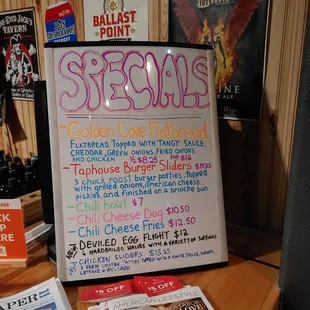 BALLAST
POINT
SPECIALS
Golden Cove Flatbread
FLATBREAD TOPPED WITH TANGY SAUCE,
CHEDDAR, GREEN ONIONS, FRIED ONIONS
AND CHICKEN 1/2 $8.25 $16
Taphouse Burger Sliders
3 chuck roast burger patties, topped
with grilled onions, american cheese,
pickles, and finished on a brioche bun
-Chili Bowl $7
-Chili Cheese Dog $10.50
-Chili Cheese Fries $12.50
DEVILED EGG FLIGHT $12
6 HARDBOILED HALVES WITH A VARIETY OF TOPPINGS
CHICKEN SLIDERS $15.25
$5 OFF
$5 OFF
AMERICAN LIFESTYLE